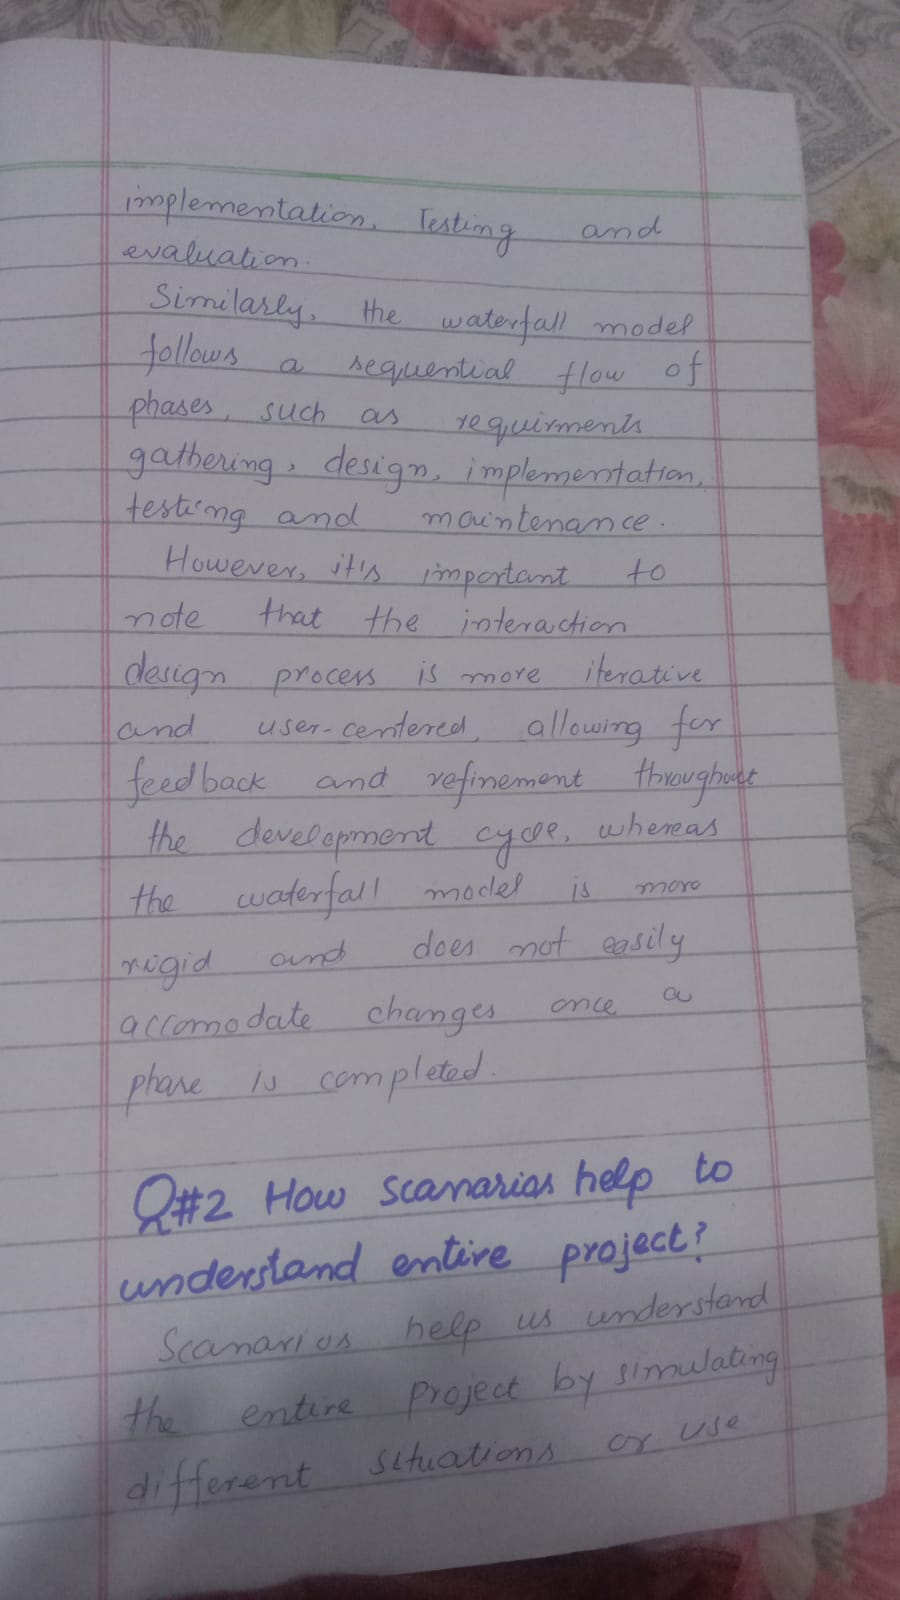 implementation, Testing and
evaluation.
Similarly, the waterfall model
follows a sequential flow of
phases, such as requirments
gathering, design, implementation,
testing and maintenance.
However, it's important to
note that the interaction
design process is more iterative
and user-centered, allowing for
feedback and refinement throughout
the development cycle, whereas
the waterfall model is more
rigid and does not easily
accomodate changes once a
phase is completed.
Q#2 How scanarios help to
understand entire project?
Scanarios help us understand
the entire project by simulating
different situations or use